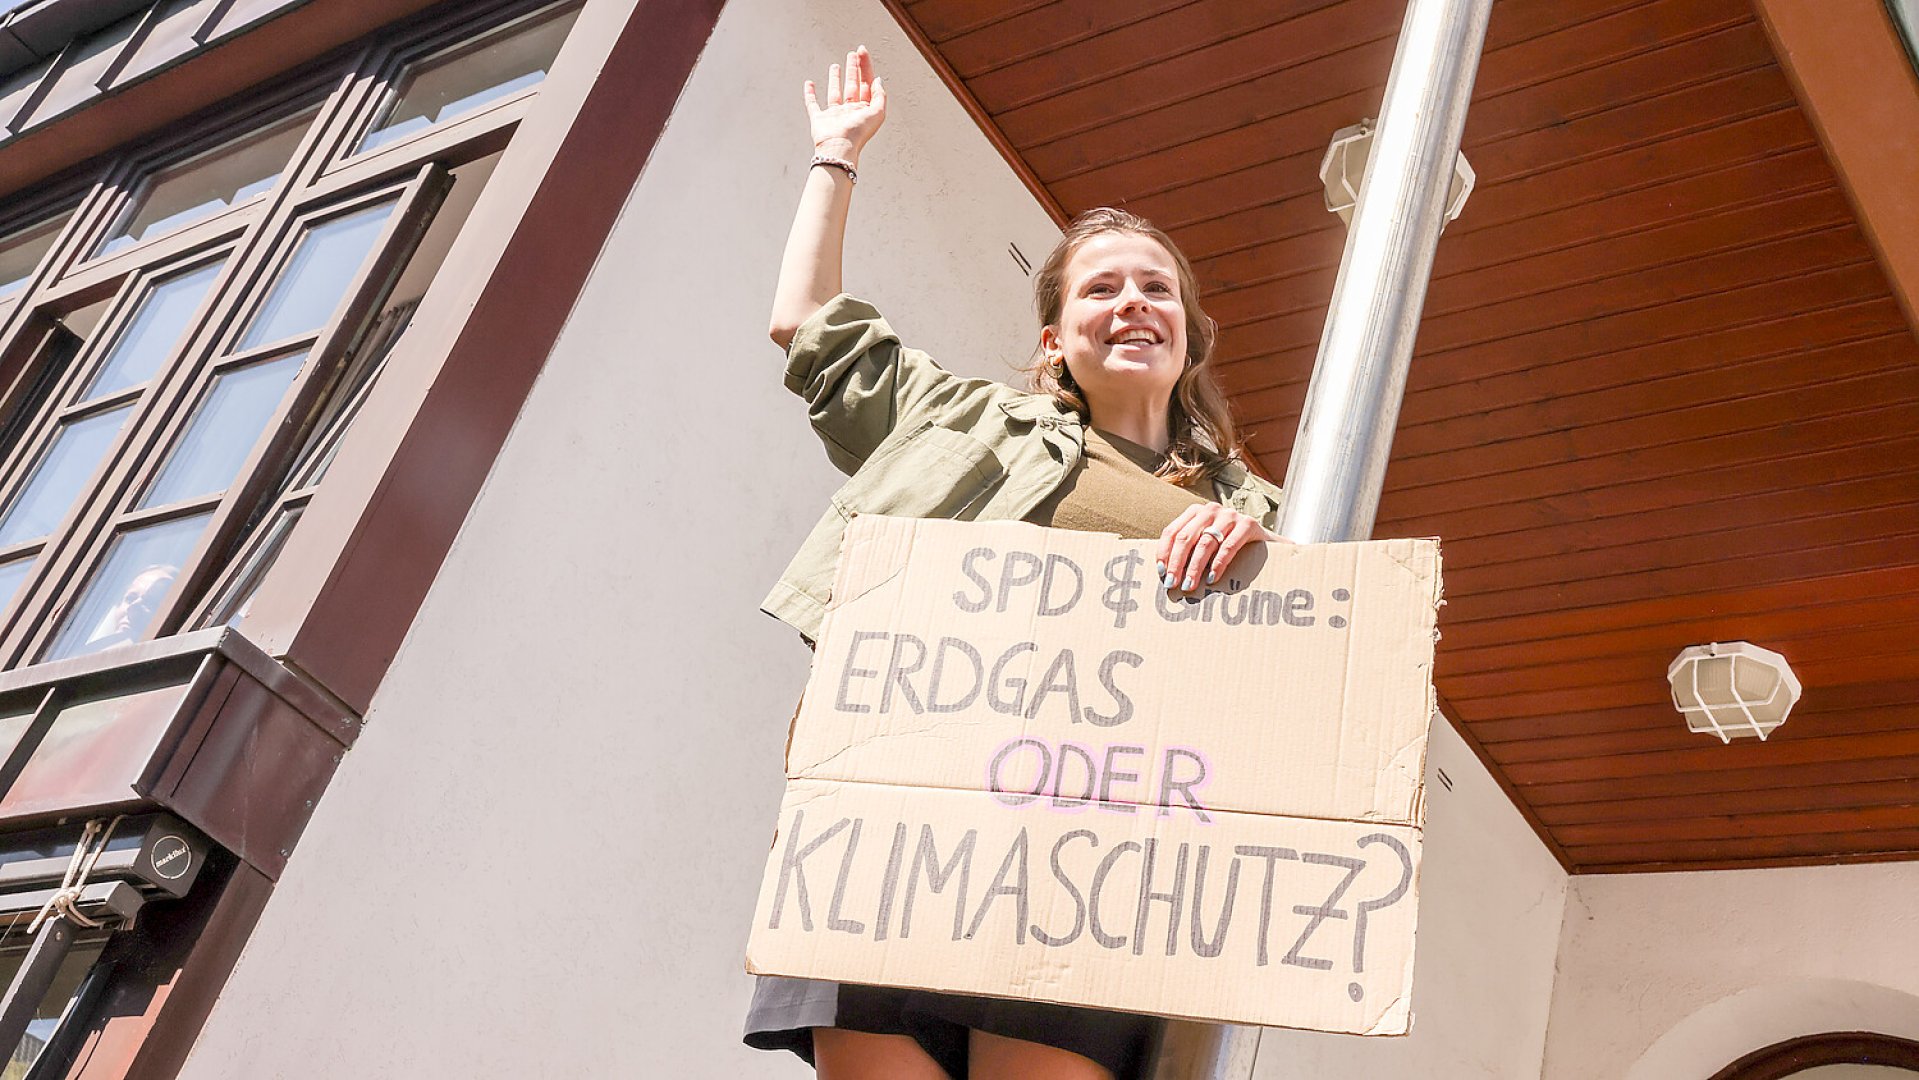 SPD & Grüne:
ERDGAS
ODER
KLIMASCHUTZ?
markilux